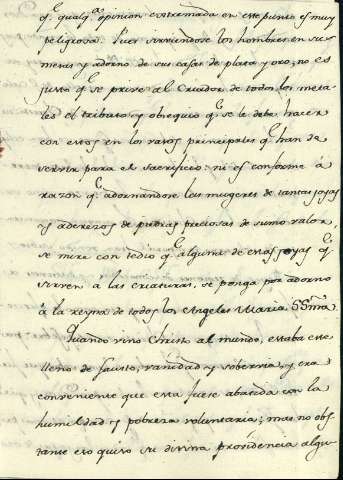 qᵉ. qualqᵃ. opinion extremada en este punto es muy
peligrosa. Pues sirviendose los hombres en sus
mesas y adorno de sus casas de plata y oro, no es
justo qᵉ se prive al Criador de todos los meta-
les el tributo y obsequio qᵉ se le debe hacer
con estos en los vasos principales qᵉ han de
servir para el sacrificio: ni es conforme á
razon qᵉ. adornandose las mugeres de tantas joyas
y aderezos de piedras preciosas de sumo valor,
se mire con tedio qᵉ alguna de estas joyas qᵉ
sirven a las criaturas, se ponga por adorno
á la reyna de todos los Angeles Maria SSma.
Quando vino Christo al mundo, estaba este
lleno de fausto, vanidad y sobervia, y era
conveniente que esta fuese abatida con la
humildad y pobreza voluntaria; mas no obs-
tante eso quiso su divina providencia algu-